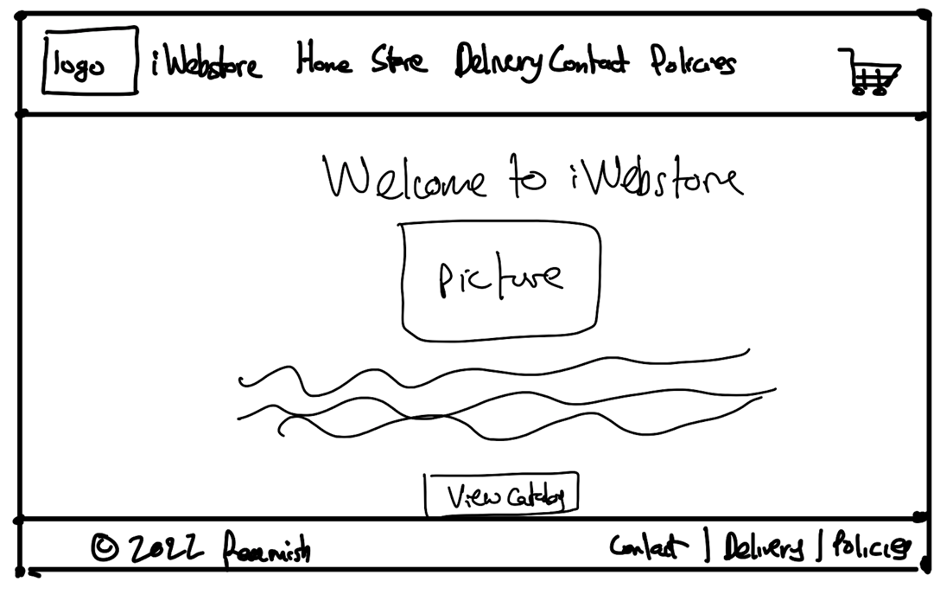 logo iWebstore Home Store Delivery Contact Policies
Welcome to iWebstore
picture
View Catalog
© 2022 Contact | Delivery | Policies